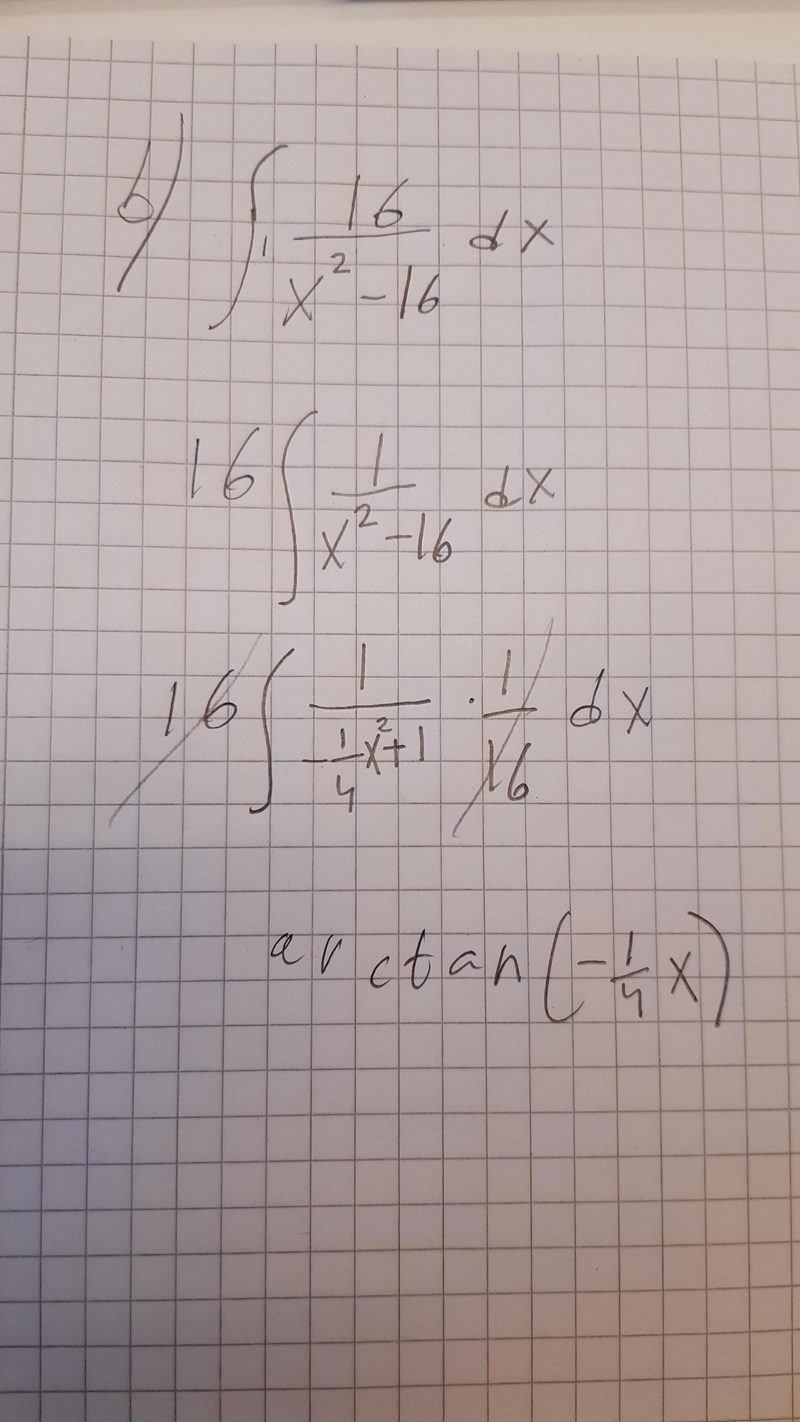 b) ∫ 16/(x² - 16) dx
16 ∫ 1/(x² - 16) dx
16 ∫ 1/(-1/4 x² + 1) · 1/16 dx
arctan(-1/4 x)